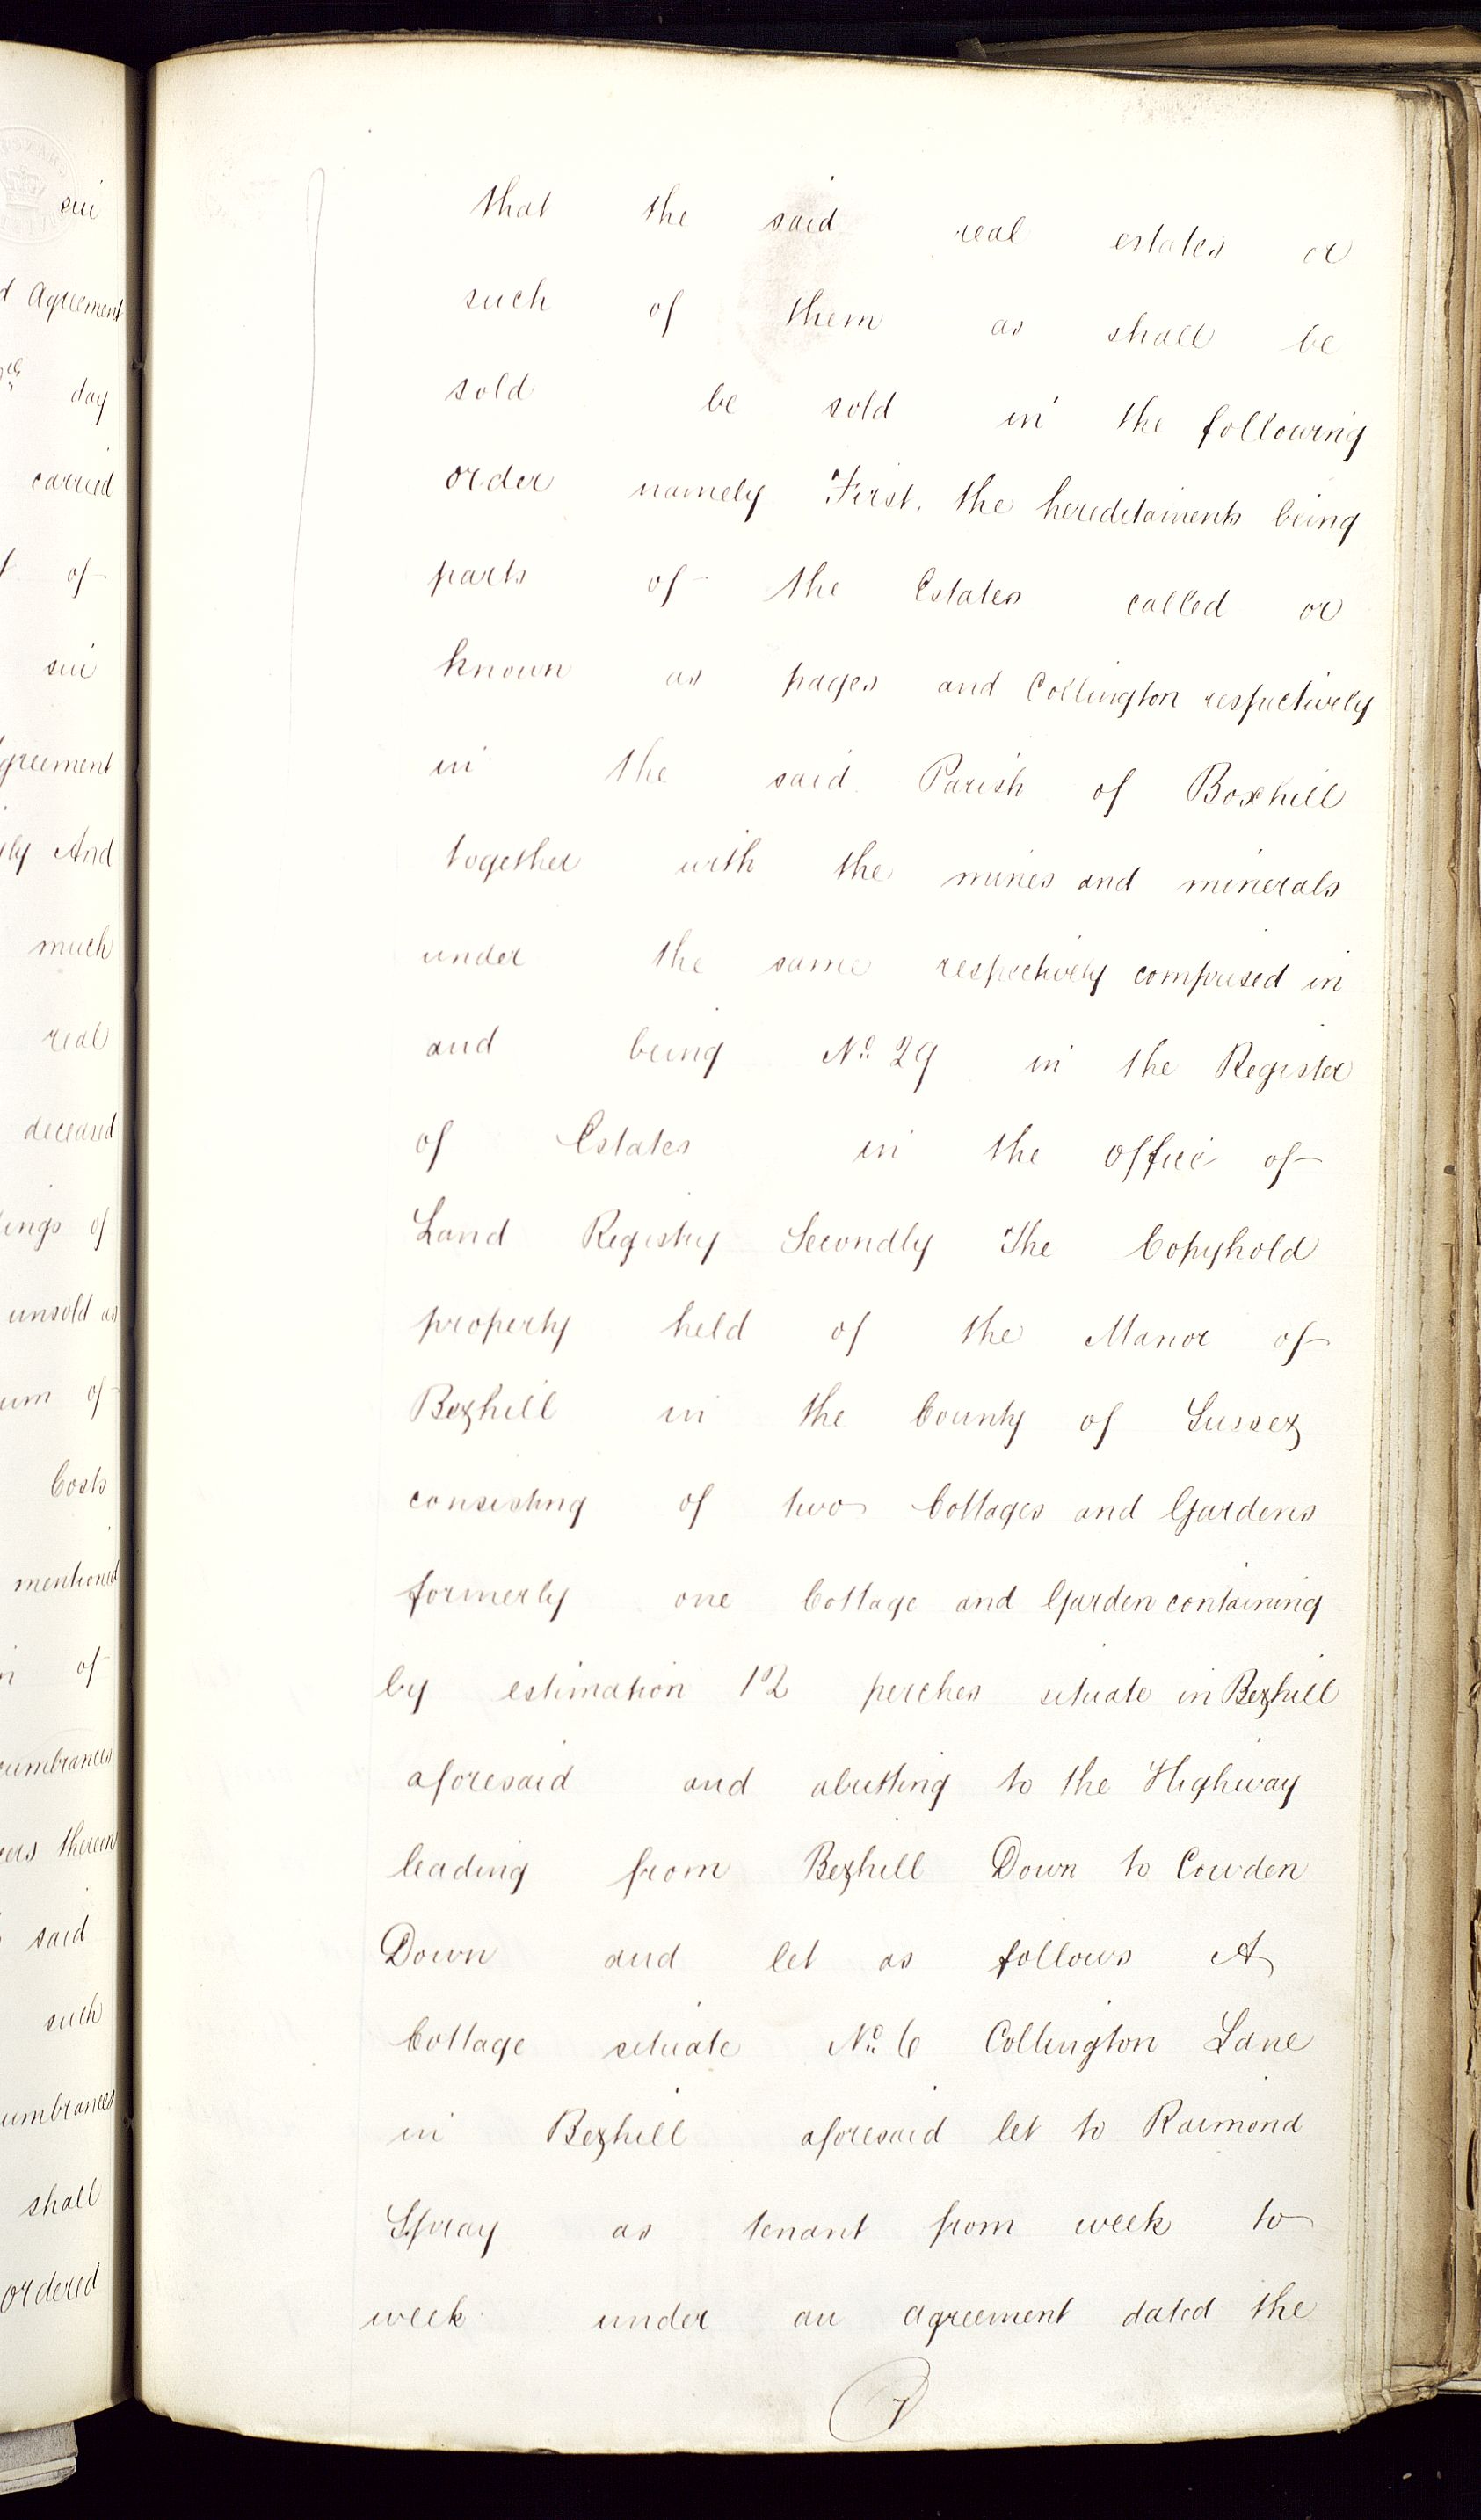 sui
Agreement
day
carried
of
sui
greement
And
much
real
deceased
ings of
unsold as
um of
Costs
mentioned
of
cumbrances
therein
said
such
umbrances
shall
ordered
that the said real estates or
such of them as shall be
sold be sold in the following
order namely First, the hereditaments being
parts of the Estates called or
known as pages and Collington respectively
in the said Parish of Boxhill
together with the mines and minerals
under the same respectively comprised in
and being No. 29 in the Register
of Estates in the office of
Land Registry Secondly The Copyhold
property held of the Manor of
Bexhill in the County of Sussex
consisting of two Cottages and Gardens
formerly one Cottage and Garden containing
by estimation 12 perches situate in Bexhill
aforesaid and abutting to the Highway
leading from Bexhill Down to Cowden
Down and let as follows A
Cottage situate No. 6 Collington Lane
in Bexhill aforesaid let to Raimond
Spray as tenant from week to
week under an agreement dated the
7